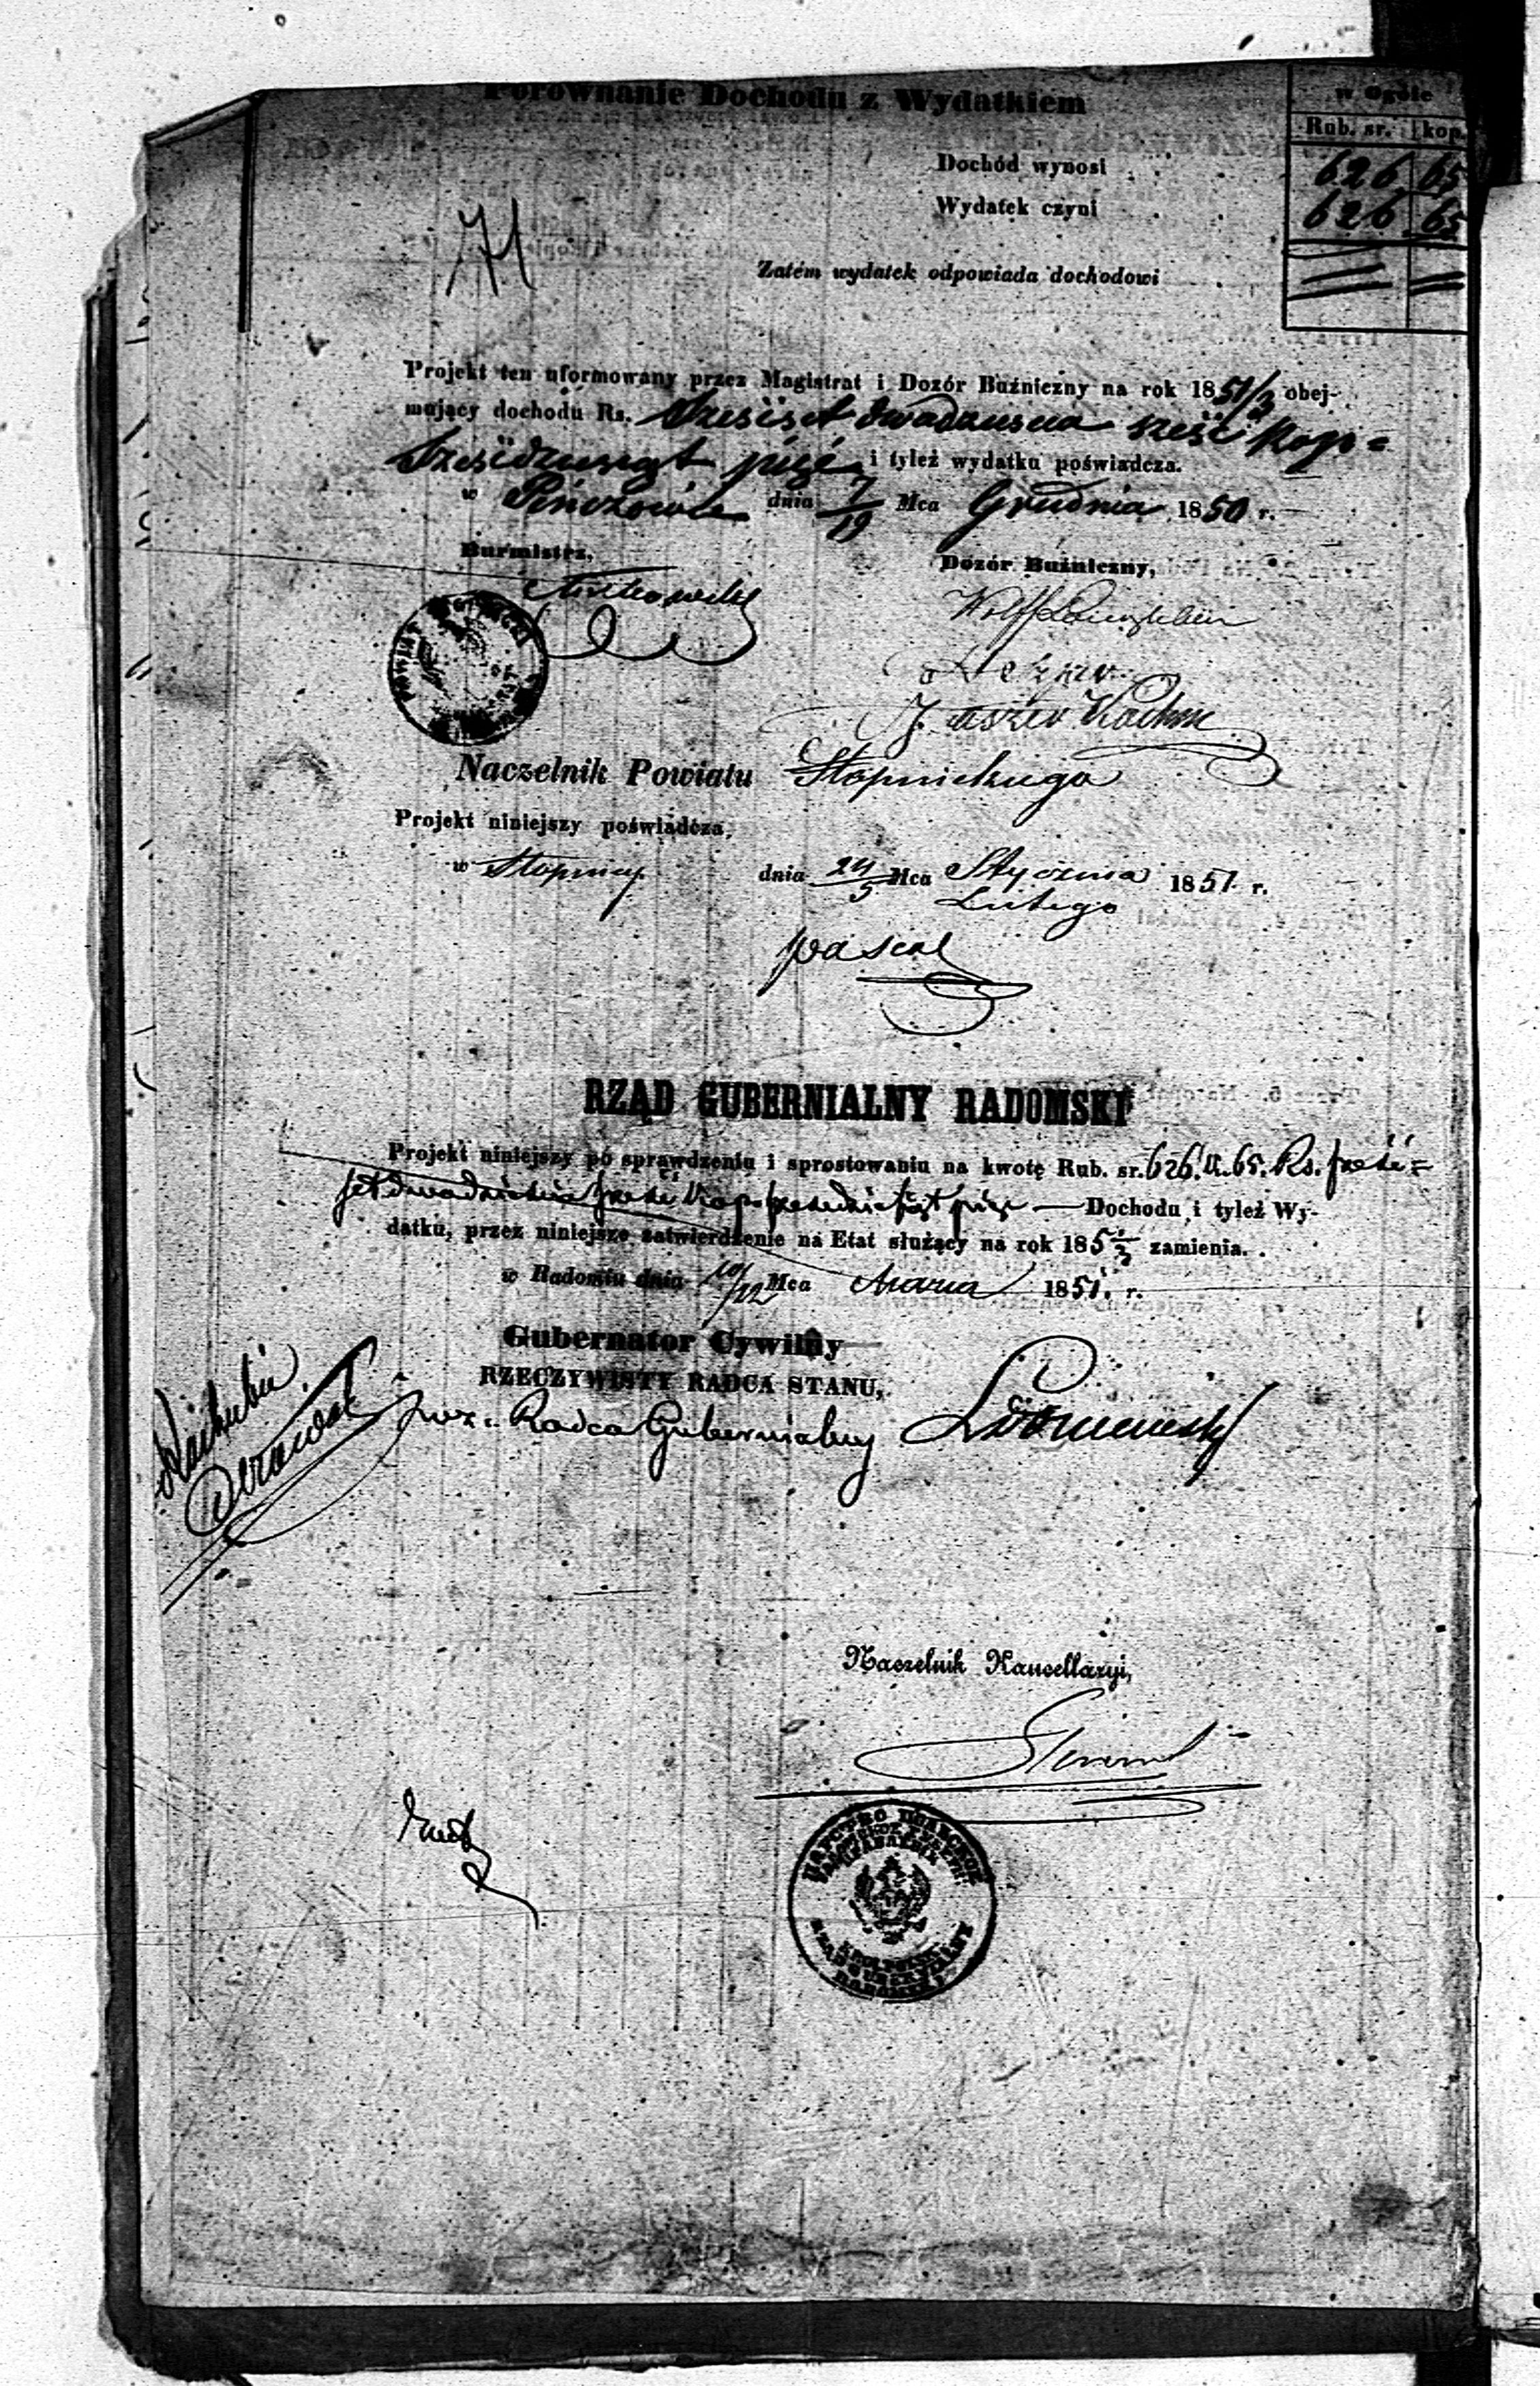 Porównanie Dochodu z Wydatkiem
w Ogóle
Rub. sr. kop.
Dochód wynosi 626 65
Wydatek czyni 626 65
Zatém wydatek odpowiada dochodowi
Projekt ten uformowany przez Magistrat i Dozór Buźniczny na rok 1851/3 obej-
mujący dochodu Rs. Sześćset dwadzieścia sześć kop=
Sześćdziesiąt pięć i tyleż wydatku poświadcza.
w Pińczowie dnia 7/19 Mca Grudnia 1850 r.
Burmistrz,
Dozór Buźniczny,
Naczelnik Powiatu Stopnickiego
Projekt niniejszy poświadcza,
w Stopnicy dnia 24/5 Mca Stycznia 1851 r.
Lutego
RZĄD GUBERNIALNY RADOMSKI
Projekt niniejszy po sprawdzeniu i sprostowaniu na kwotę Rub. sr. 626. k. 65. Rs. sześć=
set dwadzieścia sześć kop. sześćdziesiąt pięć — Dochodu i tyleż Wy-
datku, przez niniejsze zatwierdzenie na Etat służący na rok 185 1/3 zamienia.
w Radomiu dnia 10/22 Mca Marca 1851. r.
Gubernator Cywilny
RZECZYWISTY RADCA STANU,
wz. Radca Gubernialny
Naczelnik Kancellaryi,